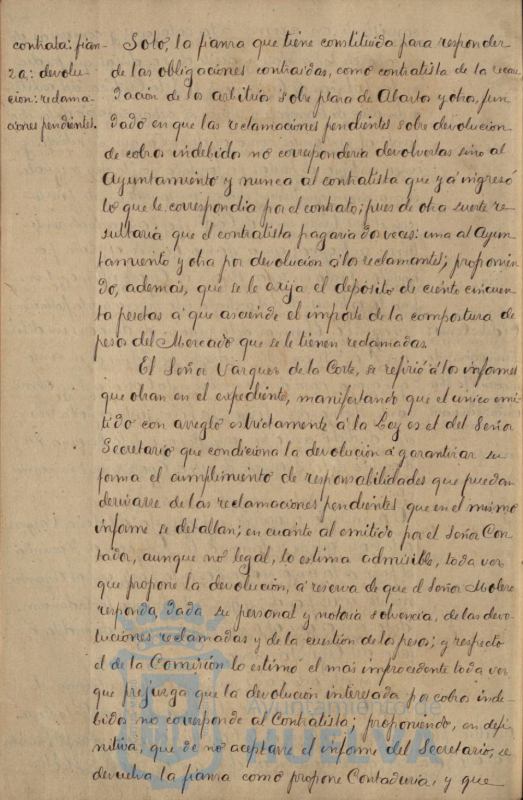 contrata: fian-
za: devolu-
cion: reclama-
ciones pendientes.
Soto, la fianza que tiene constituida para responder
de las obligaciones contraidas, como contratista de la recau
dación de los arbitrios sobre plaza de Abastos y otro, fun
dado en que las reclamaciones pendientes sobre devolucion
de cobros indebidos no corresponderia devolverlas sino al
Ayuntamiento y nunca al contratista que ya ingresó
lo que le correspondia por el contrato; pues de otra suerte re-
sultaria que el contratista pagaria dos veces: una al Ayun-
tamiento y otra por devolucion á los reclamantes; proponien
do, además, que se le exija el depósito de ciento cincuen
ta pesetas á que asciende el importe de la compostura de
pesos del Mercado que se le tienen reclamadas.
El Señor Vazquez de la Corte, se refirió á los informes
que obran en el expediente, manifestando que el único emi-
tido con arreglo estrictamente á la Ley es el del Señor
Secretario que condiciona la devolución á garantizar su
forma el cumplimiento de responsabilidades que puedan
derivarse de las reclamaciones pendientes que en el mismo
informe se detallan; en cuanto al emitido por el Señor Con
tador, aunque no legal, lo estima admisible, toda vez
que propone la devolución, á reserva de que el Señor
responda, dada su personal y notoria solvencia, de las devo-
luciones reclamadas y de la cuestion de las pesas; y respecto
el de la Comisión lo estimó el mas improcedente toda vez
que prejuzga que la devolucion interesada por cobros inde-
bidos no corresponde al Contratista; proponiendo, en defi-
nitiva, que de no aceptarse el informe del Secretario, se
devuelva la fianza como propone Contaduria, y que
Ayuntamiento de
HUELVA